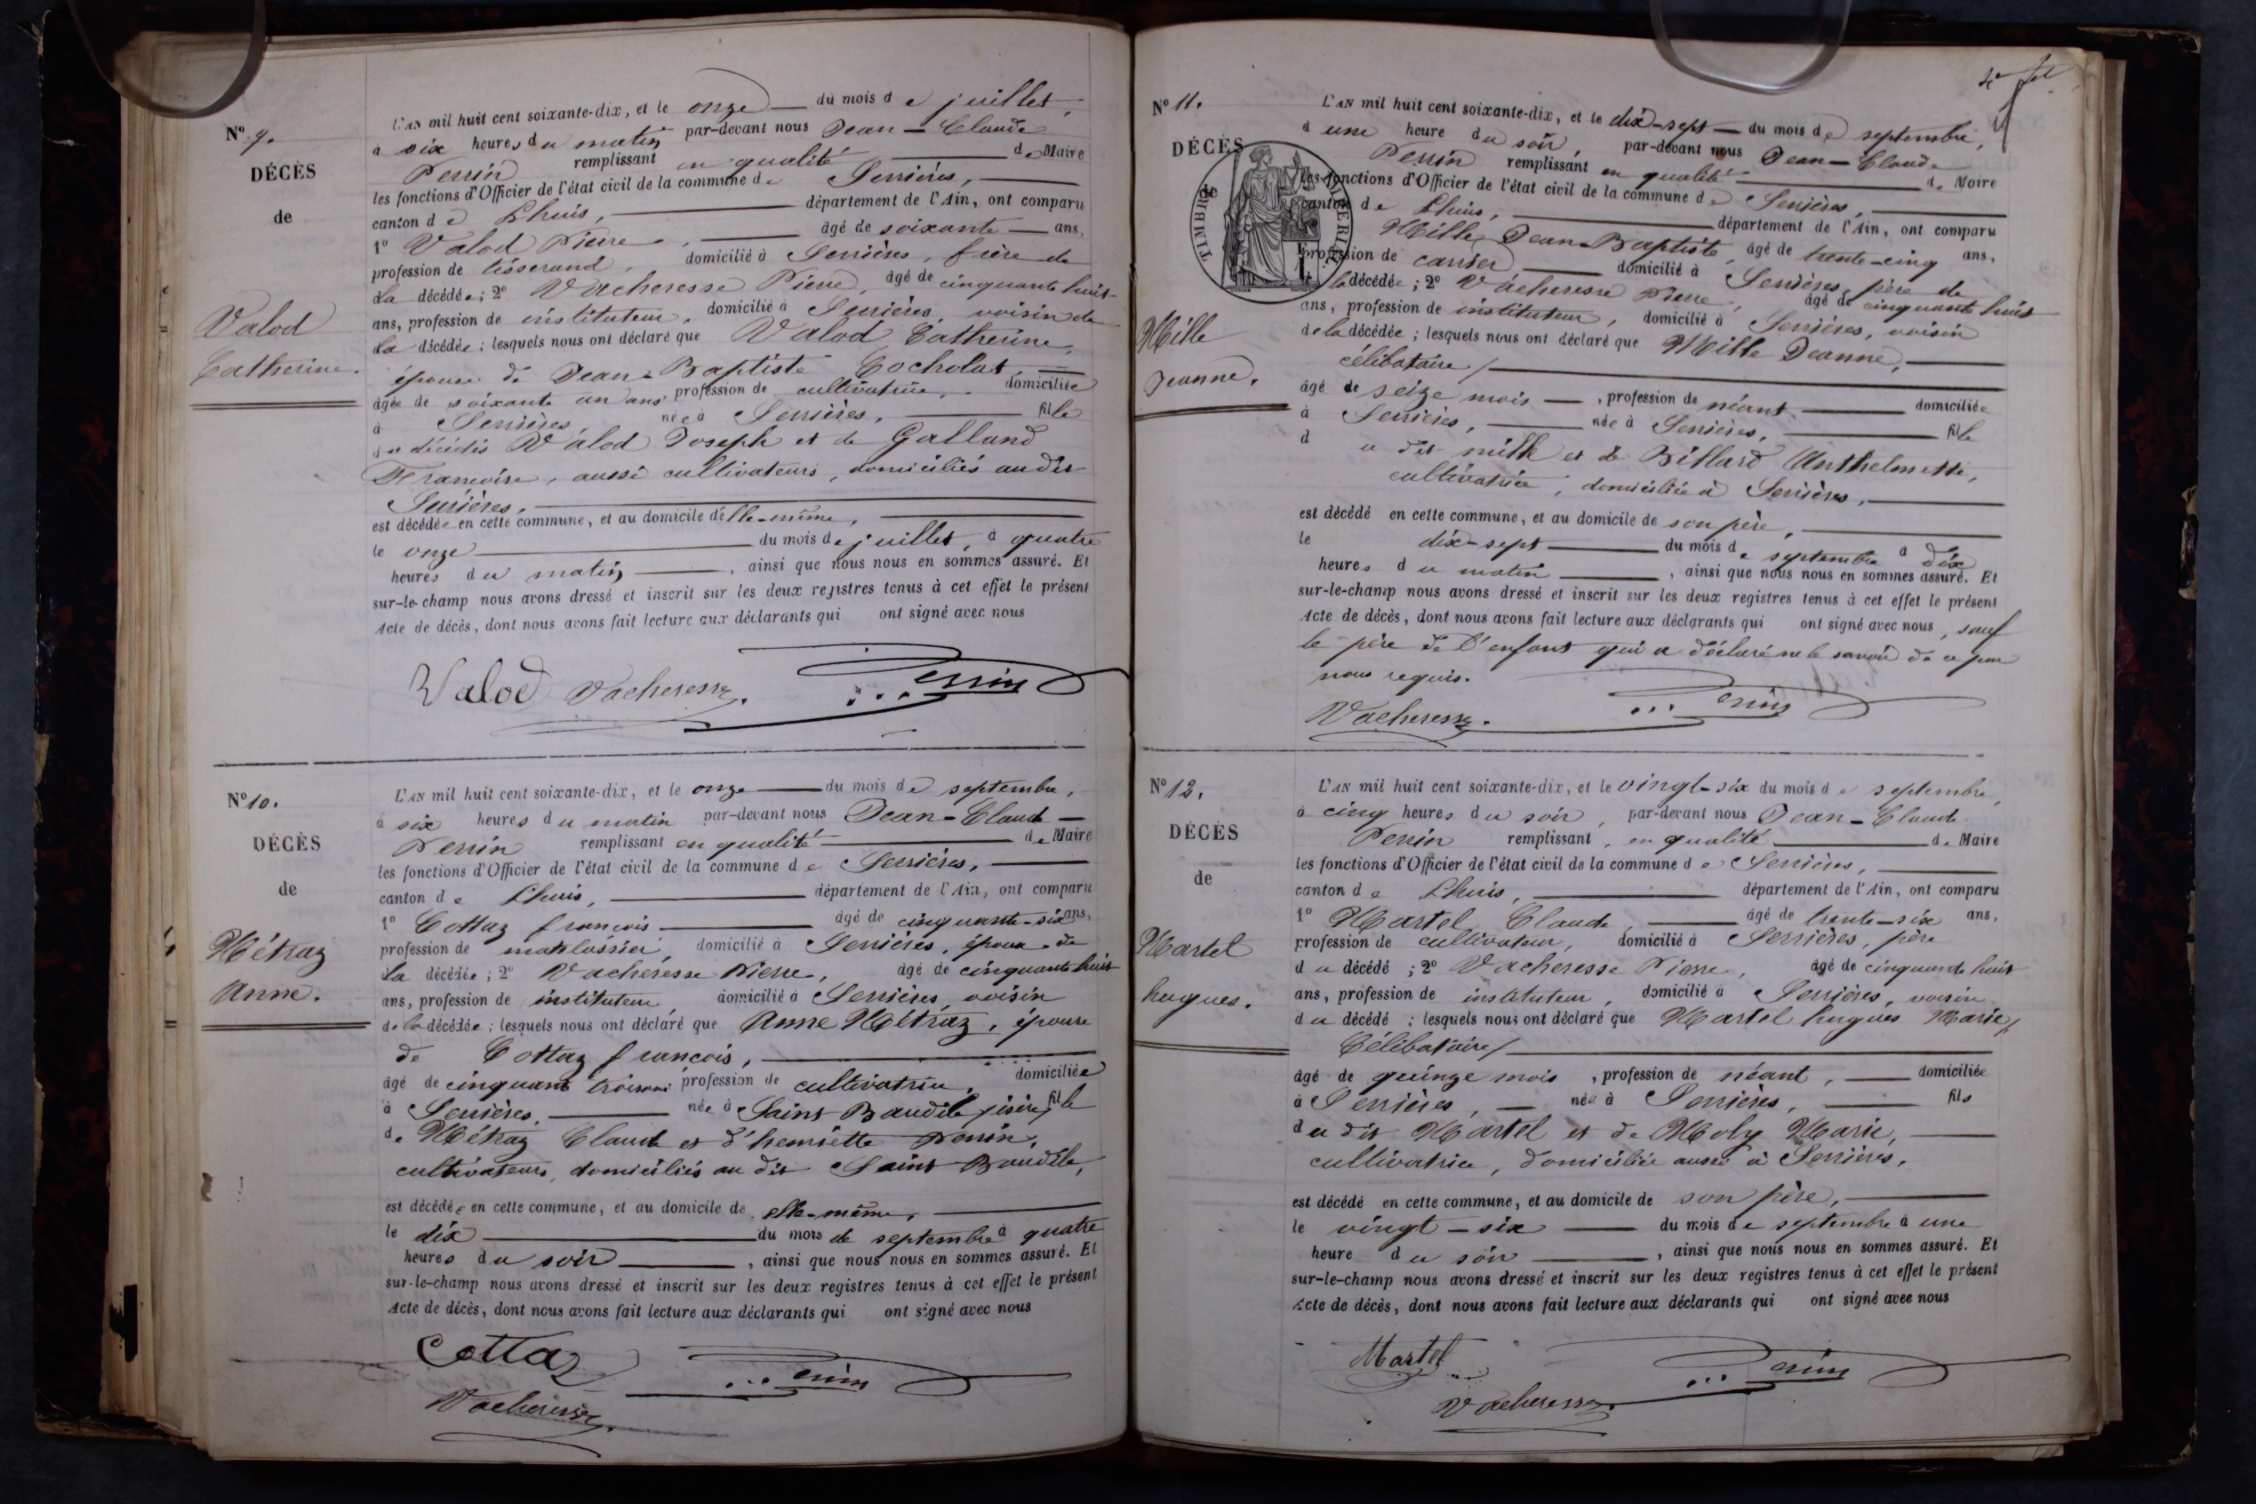 N° 9.
DÉCÈS
de
Valod
Catherine.
L'AN mil huit cent soixante-dix, et le onze du mois de juillet,
à six heures du matin par-devant nous Jean-Claude
Perrin remplissant en qualité de Maire
les fonctions d'Officier de l'état civil de la commune de Serrières,
canton de Lhuis, département de l'Ain, ont comparu
1° Valod Pierre, âgé de soixante ans,
profession de tisserand, domicilié à Serrières, frère de
la décédée; 2° Vacheresse Pierre, âgé de cinquante huit
ans, profession de instituteur, domicilié à Serrières, voisin de
la décédée; lesquels nous ont déclaré que Valod Catherine,
épouse de Jean-Baptiste Cocholat,
âgée de soixante un ans profession de cultivatrice, domiciliée
à Serrières, née à Serrières, fille
des décédés Valod Joseph et de Galland
Francoise, aussi cultivateurs, domiciliés audit
Serrières,
est décédée en cette commune, et au domicile d'elle-même,
le onze du mois de juillet, à quatre
heures du matin, ainsi que nous nous en sommes assuré. Et
sur-le-champ nous avons dressé et inscrit sur les deux registres tenus à cet effet le présent
Acte de décès, dont nous avons fait lecture aux déclarants qui ont signé avec nous
Valod Vacheresse. Perrin
N° 10.
DÉCÈS
de
Métraz
Anne.
L'AN mil huit cent soixante-dix, et le onze du mois de septembre,
à six heures du matin par-devant nous Jean-Claude
Perrin remplissant en qualité de Maire
les fonctions d'Officier de l'état civil de la commune de Serrières,
canton de Lhuis, département de l'Ain, ont comparu
1° Cottaz francois âgé de cinquante-six ans,
profession de matelassier, domicilié à Serrières, époux de
la décédée; 2° Vacheresse Pierre, âgé de cinquante huit
ans, profession de instituteur, domicilié à Serrières, voisin
de la décédée; lesquels nous ont déclaré que Anne Métraz, épouse
de Cottaz francois,
âgé de cinquante trois ans profession de cultivatrice, domiciliée
à Serrières, née à Saint Baudile, isère, fille
de Métraz Claude et d'henriette Perrin,
cultivateurs, domiciliés au dit Saint Baudile,
est décédée en cette commune, et au domicile de elle-même,
le dix du mois de septembre à quatre
heures du soir, ainsi que nous nous en sommes assuré. Et
sur-le-champ nous avons dressé et inscrit sur les deux registres tenus à cet effet le présent
Acte de décès, dont nous avons fait lecture aux déclarants qui ont signé avec nous
Cottaz Perrin
Vacheresse.
N° 11.
DÉCÈS
de
TIMBRE IMPÉRIAL
Mille
Jeanne.
L'AN mil huit cent soixante-dix, et le dix-sept du mois de septembre,
à une heure du soir, par-devant nous Jean-Claude
Perrin remplissant en qualité de Maire
les fonctions d'Officier de l'état civil de la commune de Serrières,
canton de Lhuis, département de l'Ain, ont comparu
Mille Jean-Baptiste, âgé de trente-cinq ans,
profession de carrier domicilié à Serrières, père de
la décédée; 2° Vacheresse Pierre, âgé de cinquante huit
ans, profession de instituteur, domicilié à Serrières, voisin
de la décédée; lesquels nous ont déclaré que Mille Jeanne,
célibataire/
âgé de seize mois, profession de néant domiciliée
à Serrières, née à Serrières, fille
du dit mille et de Billard Anthelmette,
cultivatrice, domiciliée à Serrières,
est décédé en cette commune, et au domicile de son père,
le dix-sept du mois de septembre à dix
heures du matin, ainsi que nous nous en sommes assuré. Et
sur-le-champ nous avons dressé et inscrit sur les deux registres tenus à cet effet le présent
Acte de décès, dont nous avons fait lecture aux déclarants qui ont signé avec nous, sauf
le père de l'enfant qui a déclaré ne le savoir de ce par
nous requis.
Vacheresse. Perrin
N° 12.
DÉCÈS
de
Martel
hugues.
L'AN mil huit cent soixante-dix, et le vingt-six du mois de septembre,
à cinq heures du soir, par-devant nous Jean-Claude
Perrin remplissant, en qualité de Maire
les fonctions d'Officier de l'état civil de la commune de Serrières,
canton de Lhuis, département de l'Ain, ont comparu
1° Martel Claude, âgé de trente-six ans,
profession de cultivateur, domicilié à Serrières, père
du décédé; 2° Vacheresse Pierre, âgé de cinquante huit
ans, profession de instituteur, domicilié à Serrières, voisin
du décédé; lesquels nous ont déclaré que Martel hugues Marie,
Célibataire/
âgé de quinze mois, profession de néant, domiciliée
à Serrières, née à Serrières, fils
du dit Martel et de Moly Marie,
cultivatrice, domiciliée aussi à Serrières,
est décédé en cette commune, et au domicile de son père,
le vingt-six du mois de septembre à une
heure du soir, ainsi que nous nous en sommes assuré. Et
sur-le-champ nous avons dressé et inscrit sur les deux registres tenus à cet effet le présent
Acte de décès, dont nous avons fait lecture aux déclarants qui ont signé avec nous
Martel Perrin
Vacheresse.